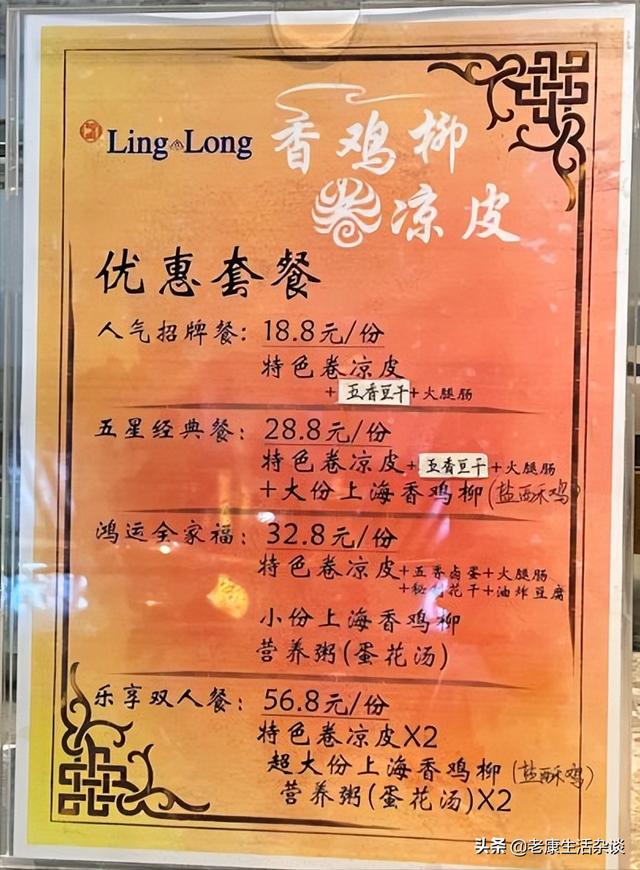 Ling Long
香鸡柳
卷凉皮
优惠套餐
人气招牌餐：18.8元/份
特色卷凉皮
+五香豆干+火腿肠
五星经典餐：28.8元/份
特色卷凉皮+五香豆干+火腿肠
+大份上海香鸡柳(盐酥鸡)
鸿运全家福：32.8元/份
特色卷凉皮+五香卤蛋+火腿肠
+秘制花干+油炸豆腐
小份上海香鸡柳
营养粥(蛋花汤)
乐享双人餐：56.8元/份
特色卷凉皮X2
超大份上海香鸡柳(盐酥鸡)
营养粥(蛋花汤)X2
头条 @老康生活杂谈